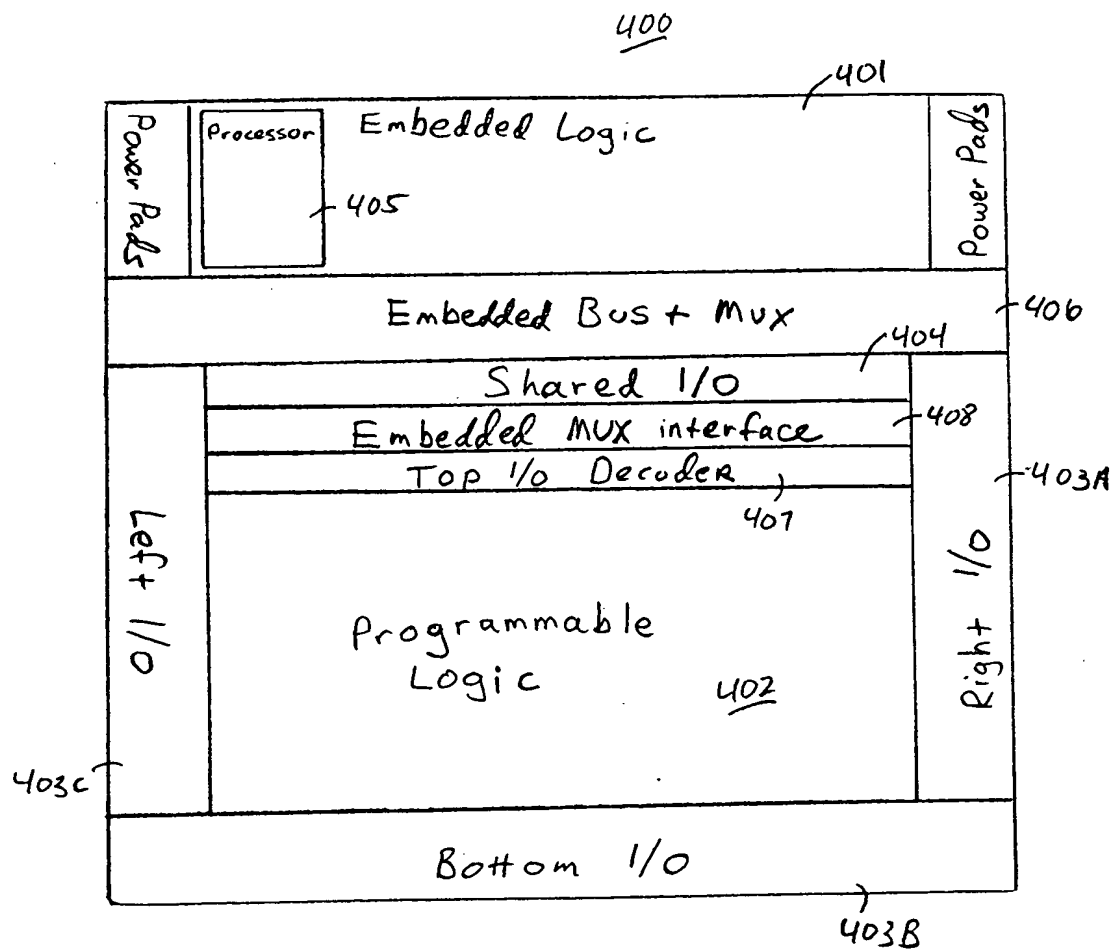 400
401
Power Pads
Processor
Embedded Logic
Power Pads
405
Embedded Bus + Mux
406
404
Shared I/O
408
Embedded MUX interface
Top I/O Decoder
403A
407
Left I/O
Right I/O
Programmable
Logic
402
403C
Bottom I/O
403B